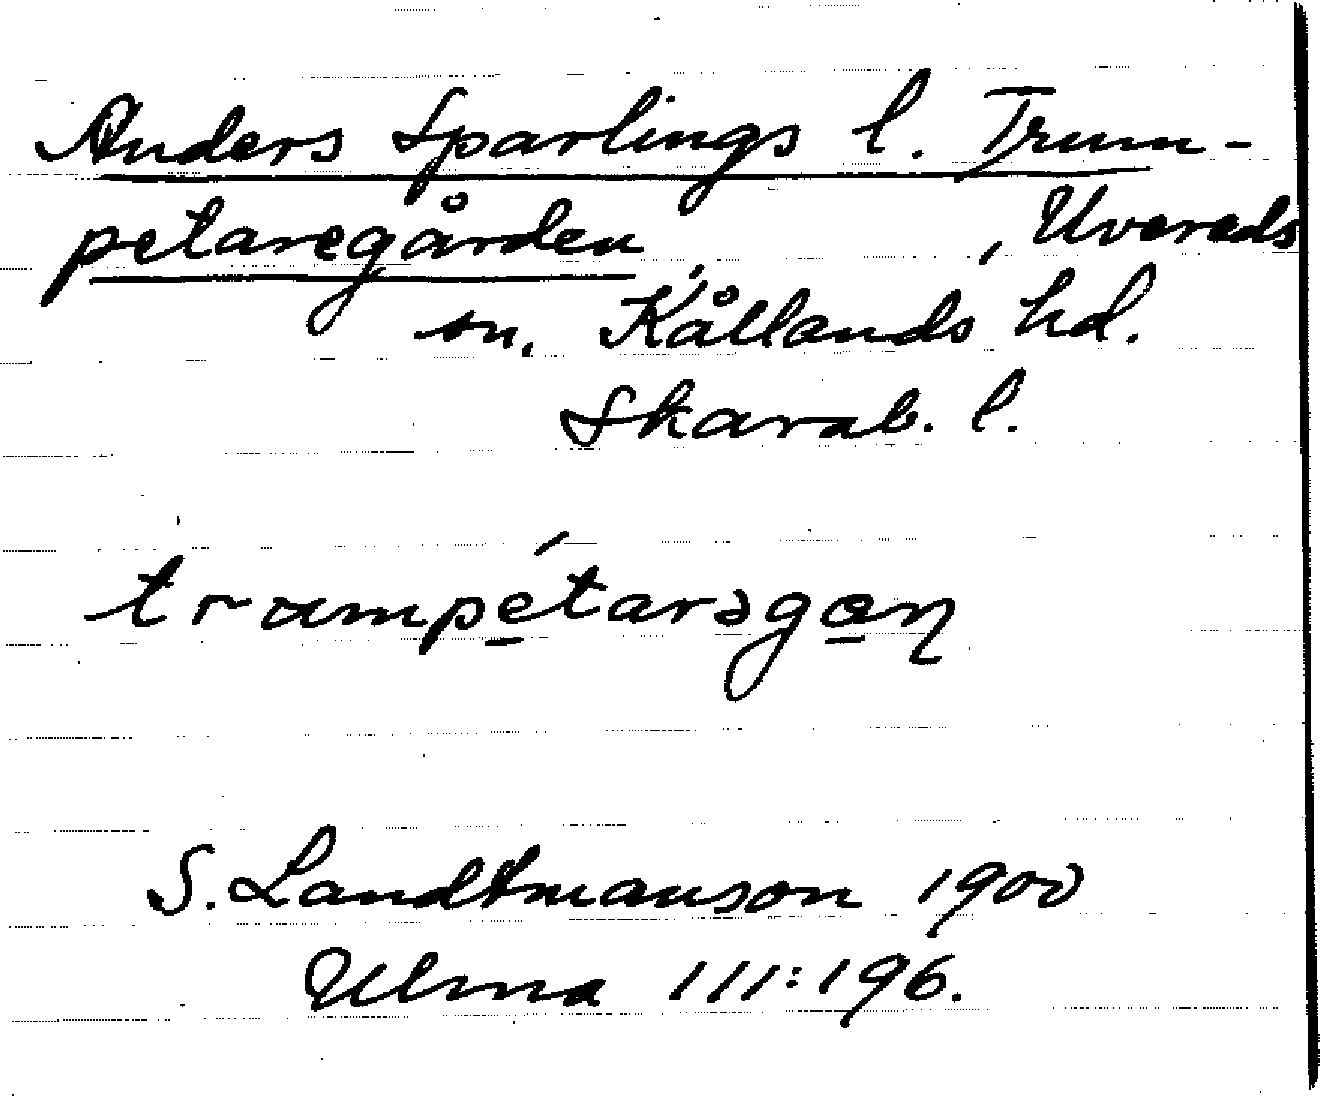 Anders Sparlings l. Trum-
petaregården, Uvereds
sn, Kållands hd.
Skarab. l.
trumpétarəgaɳ
S. Landtmanson 1900
Ulma 111:196.